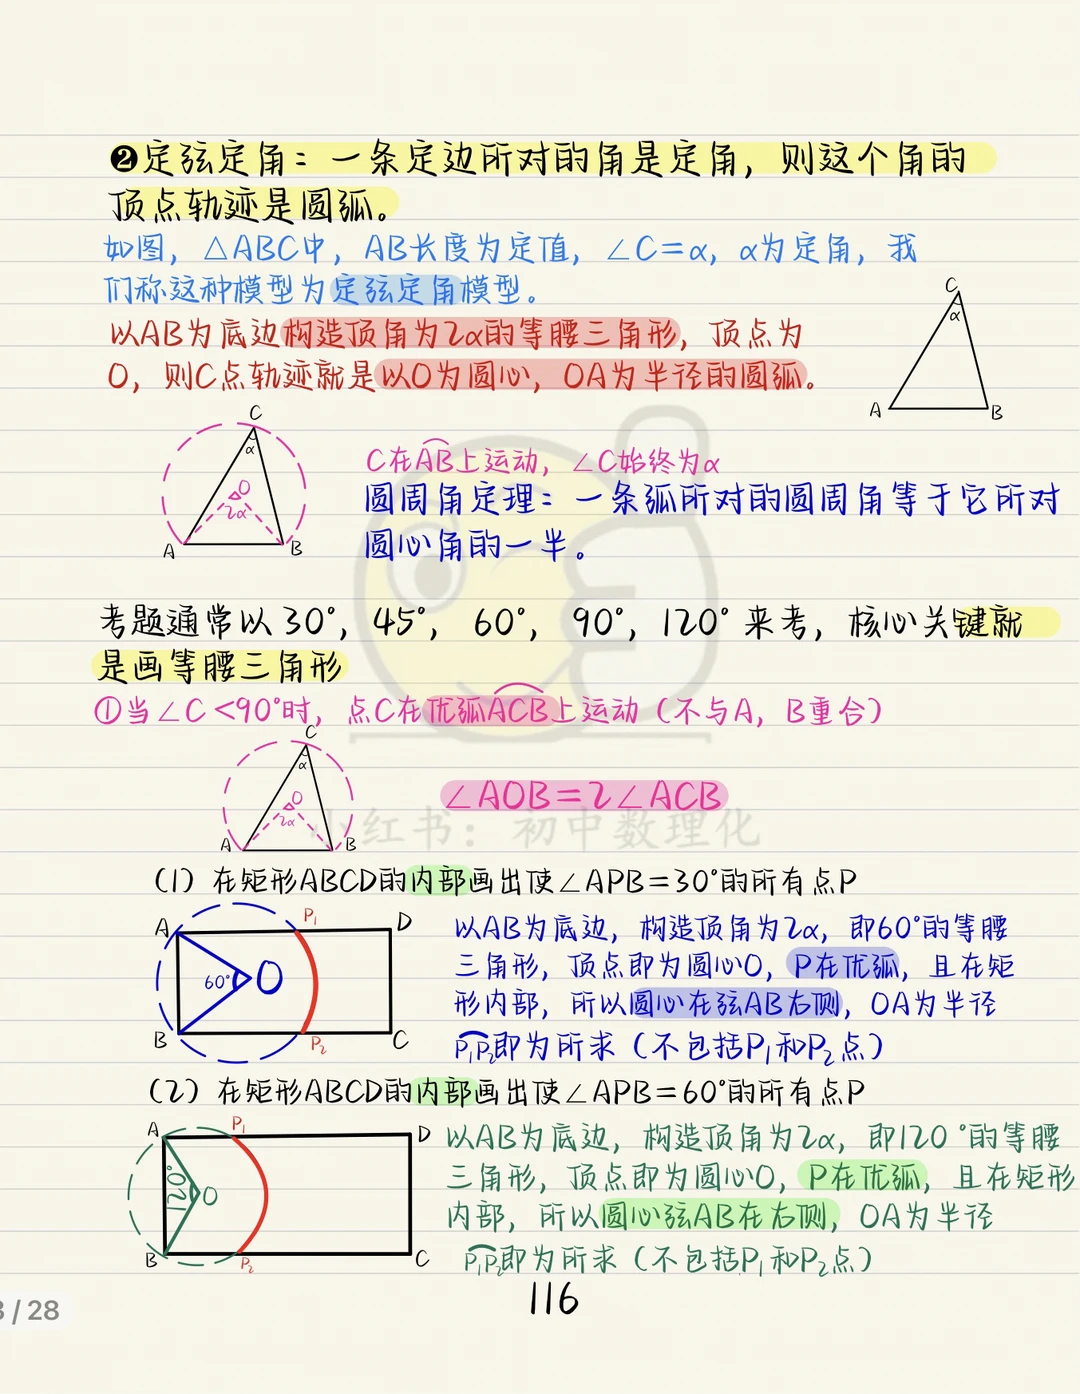 ❷定弦定角：一条定边所对的角是定角，则这个角的
顶点轨迹是圆弧。
如图，△ABC中，AB长度为定值，∠C=α，α为定角，我
们称这种模型为定弦定角模型。
以AB为底边构造顶角为2α的等腰三角形，顶点为
O，则C点轨迹就是以O为圆心，OA为半径的圆弧。
C
α
A
B
C
α
O
2α
A
B
C在AB上运动，∠C始终为α
圆周角定理：一条弧所对的圆周角等于它所对
圆心角的一半。
考题通常以30°，45°，60°，90°，120°来考，核心关键就
是画等腰三角形
①当∠C<90°时，点C在优弧ACB上运动（不与A，B重合）
C
α
O
2α
A
B
∠AOB=2∠ACB
小红书：初中数理化
（1）在矩形ABCD的内部画出使∠APB=30°的所有点P
A
P₁
D
60°
O
B
P₂
C
以AB为底边，构造顶角为2α，即60°的等腰
三角形，顶点即为圆心O，P在优弧，且在矩
形内部，所以圆心在弦AB右侧，OA为半径
P₁P₂即为所求（不包括P₁和P₂点）
（2）在矩形ABCD的内部画出使∠APB=60°的所有点P
A
P₁
D
120°
O
B
P₂
C
以AB为底边，构造顶角为2α，即120°的等腰
三角形，顶点即为圆心O，P在优弧，且在矩形
内部，所以圆心弦AB在右侧，OA为半径
P₁P₂即为所求（不包括P₁和P₂点）
116
3/28